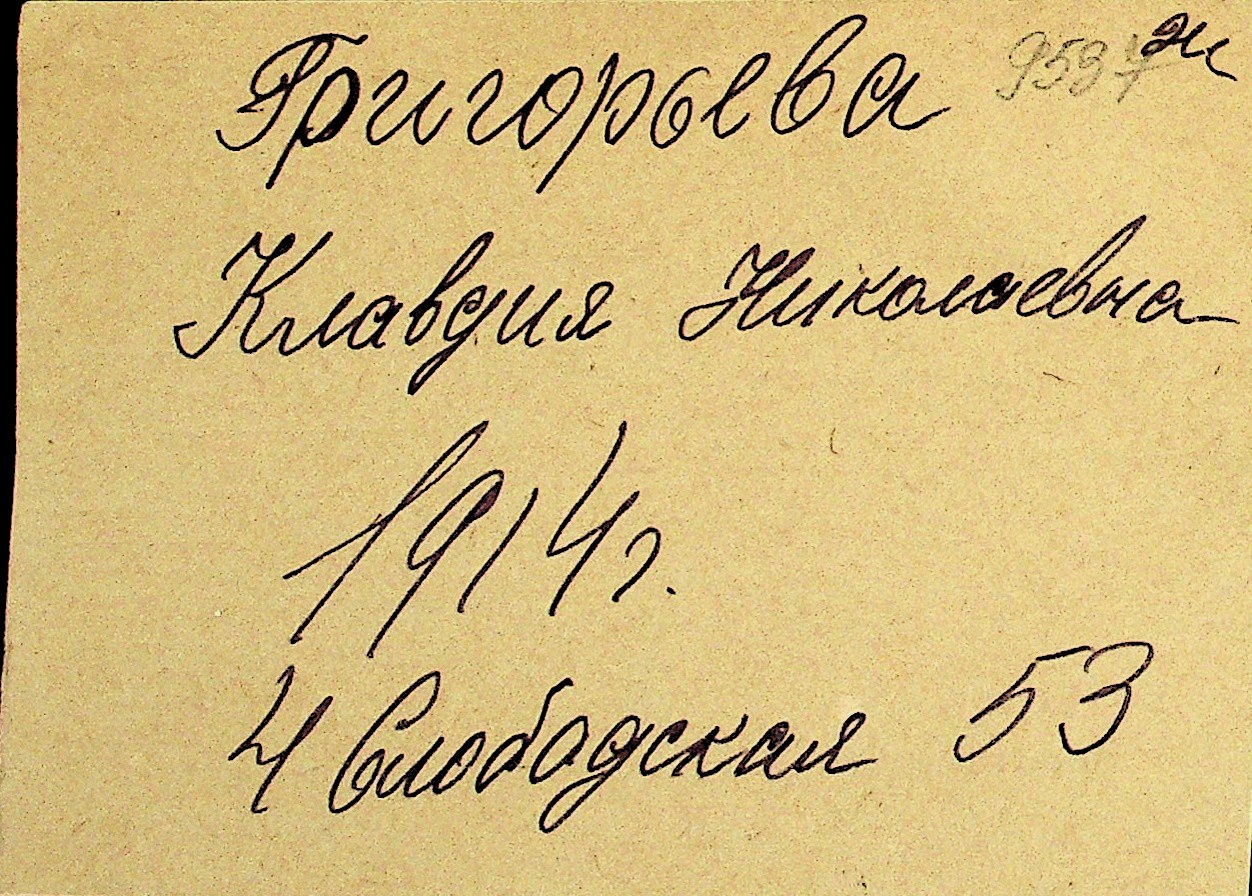 Григорьева
Клавдия Николаевна
1914г.
4 Слободская 53